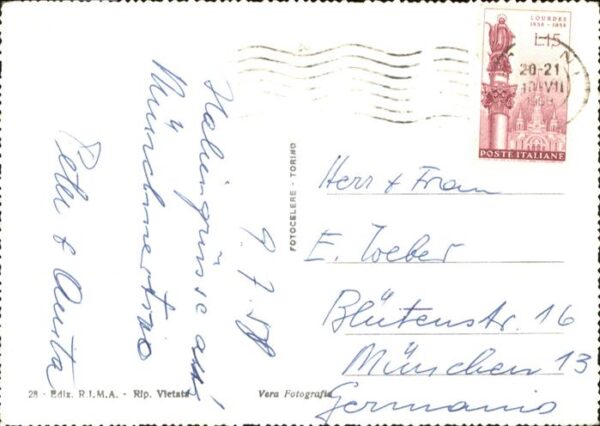 9.7.58
Italiengrüsse aus
Peter & Anita
FOTOCELERE - TORINO
28 - Ediz. R.I.M.A. - Rip. Vietata
Vera Fotografia
LOURDES
1858 - 1958
L.15
POSTE ITALIANE
20-21
10·VII
Herr & Frau
E. Weber
Blütenstr. 16
München 13
Germania